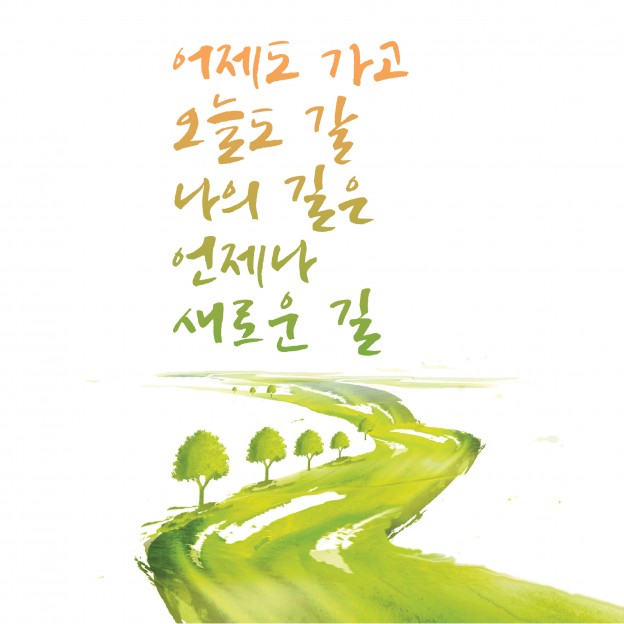 어제도 가고
오늘도 갈
나의 길은
언제나
새로운 길